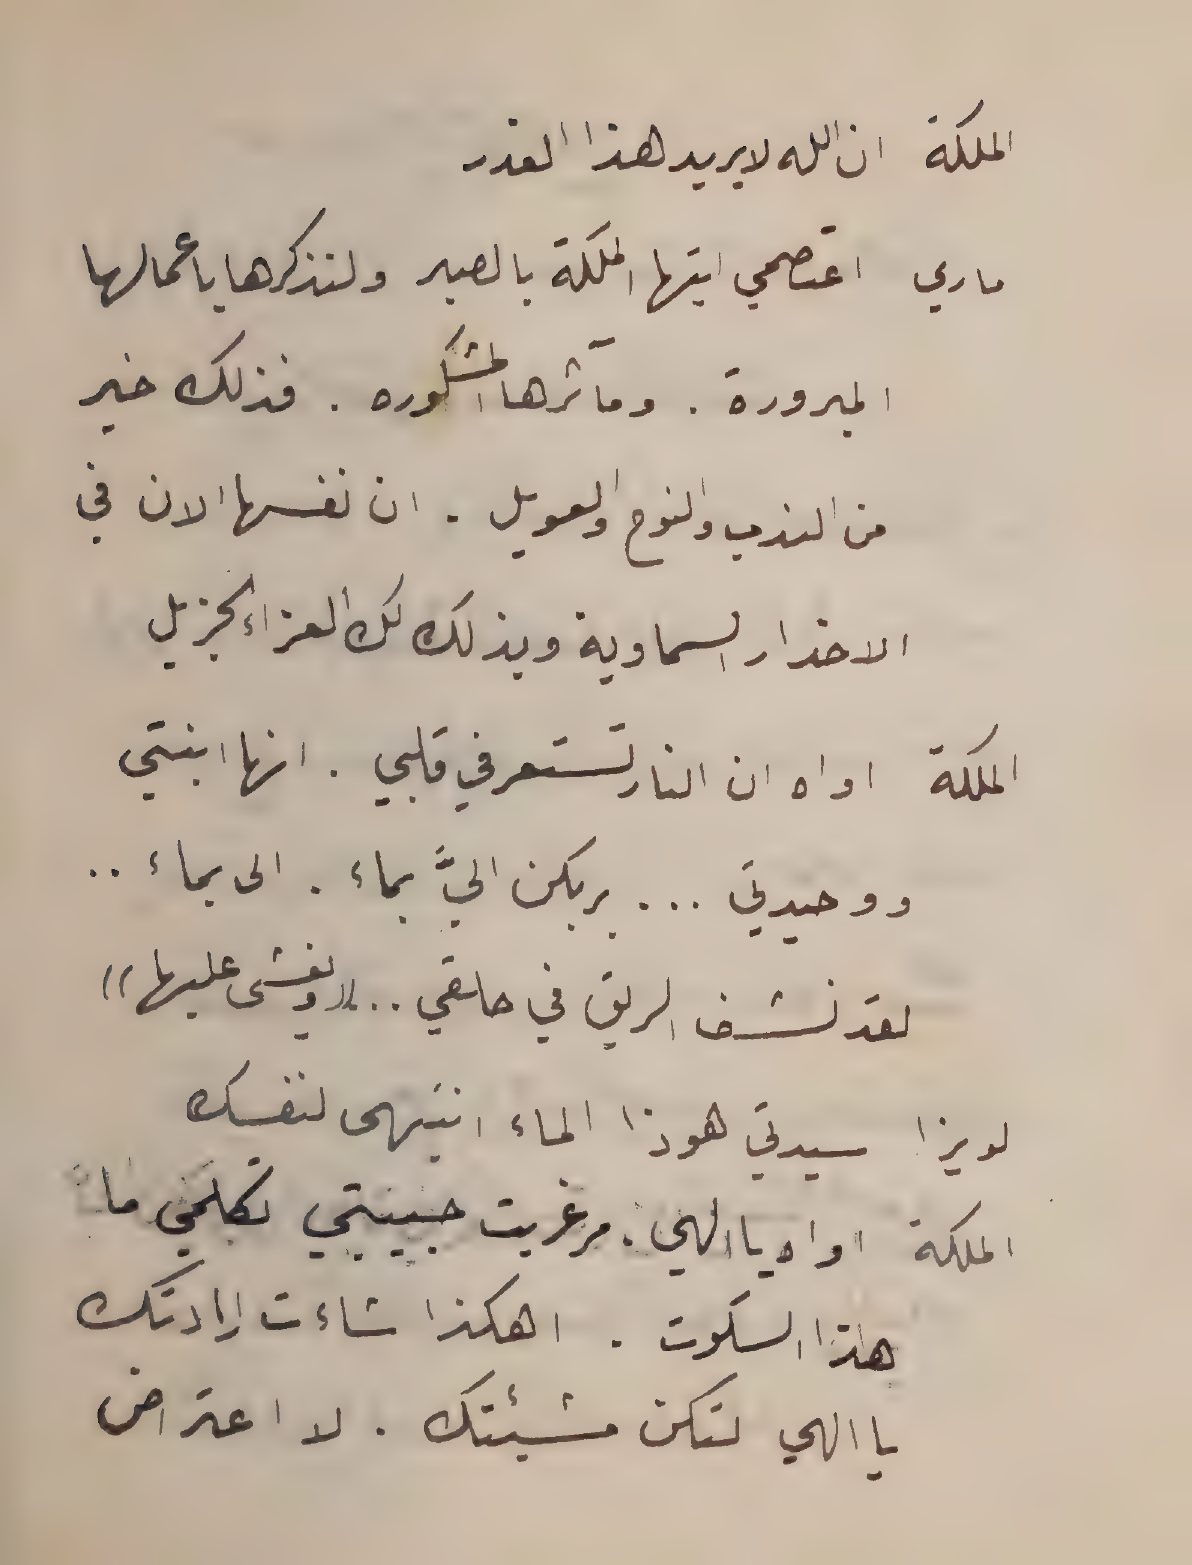 الملكة ان الله لا يريد هذا الغدر
ماري اعتصمي ايتها الملكة بالصبر ولنذكرها باعمالها
المبرورة . ومآثرها المشكوره . فذلك خير
من الندب والنوح والعويل . ان نفسها الان في
الاخدار السماوية وبذلك لك العزاء الجزيل
الملكة اواه ان النار تستعر في قلبي . انها ابنتي
ووحيدتي ... بربكن اليَّ بماء . الى بماء ..
لقد نشف الريق في حلقي .. ((ويغشى عليها))
لويزا سيدتي هوذا الماء انتبهى لنفسك
الملكة اواه يا الهي . مرغريت حبيبتي تكلمي ما
هذا السكوت . اهكذا شاءت ارادتك
يا الهي لتكن مشيئتك . لا اعتراض